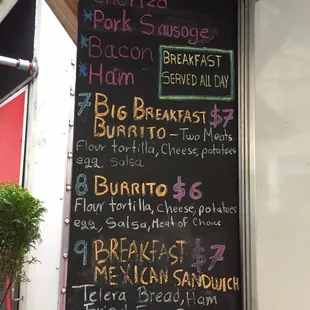 *Pork Sausage
*Bacon
*Ham
BREAKFAST
SERVED ALL DAY
7 BIG BREAKFAST $7
BURRITO - TWO MEATS
Flour tortilla, Cheese, potatoes
egg, salsa
8 BURRITO $6
Flour tortilla, Cheese, potatoes
egg, Salsa, Meat of Choice
9 BREAKFAST $7
MEXICAN SANDWICH
Telera Bread, Ham